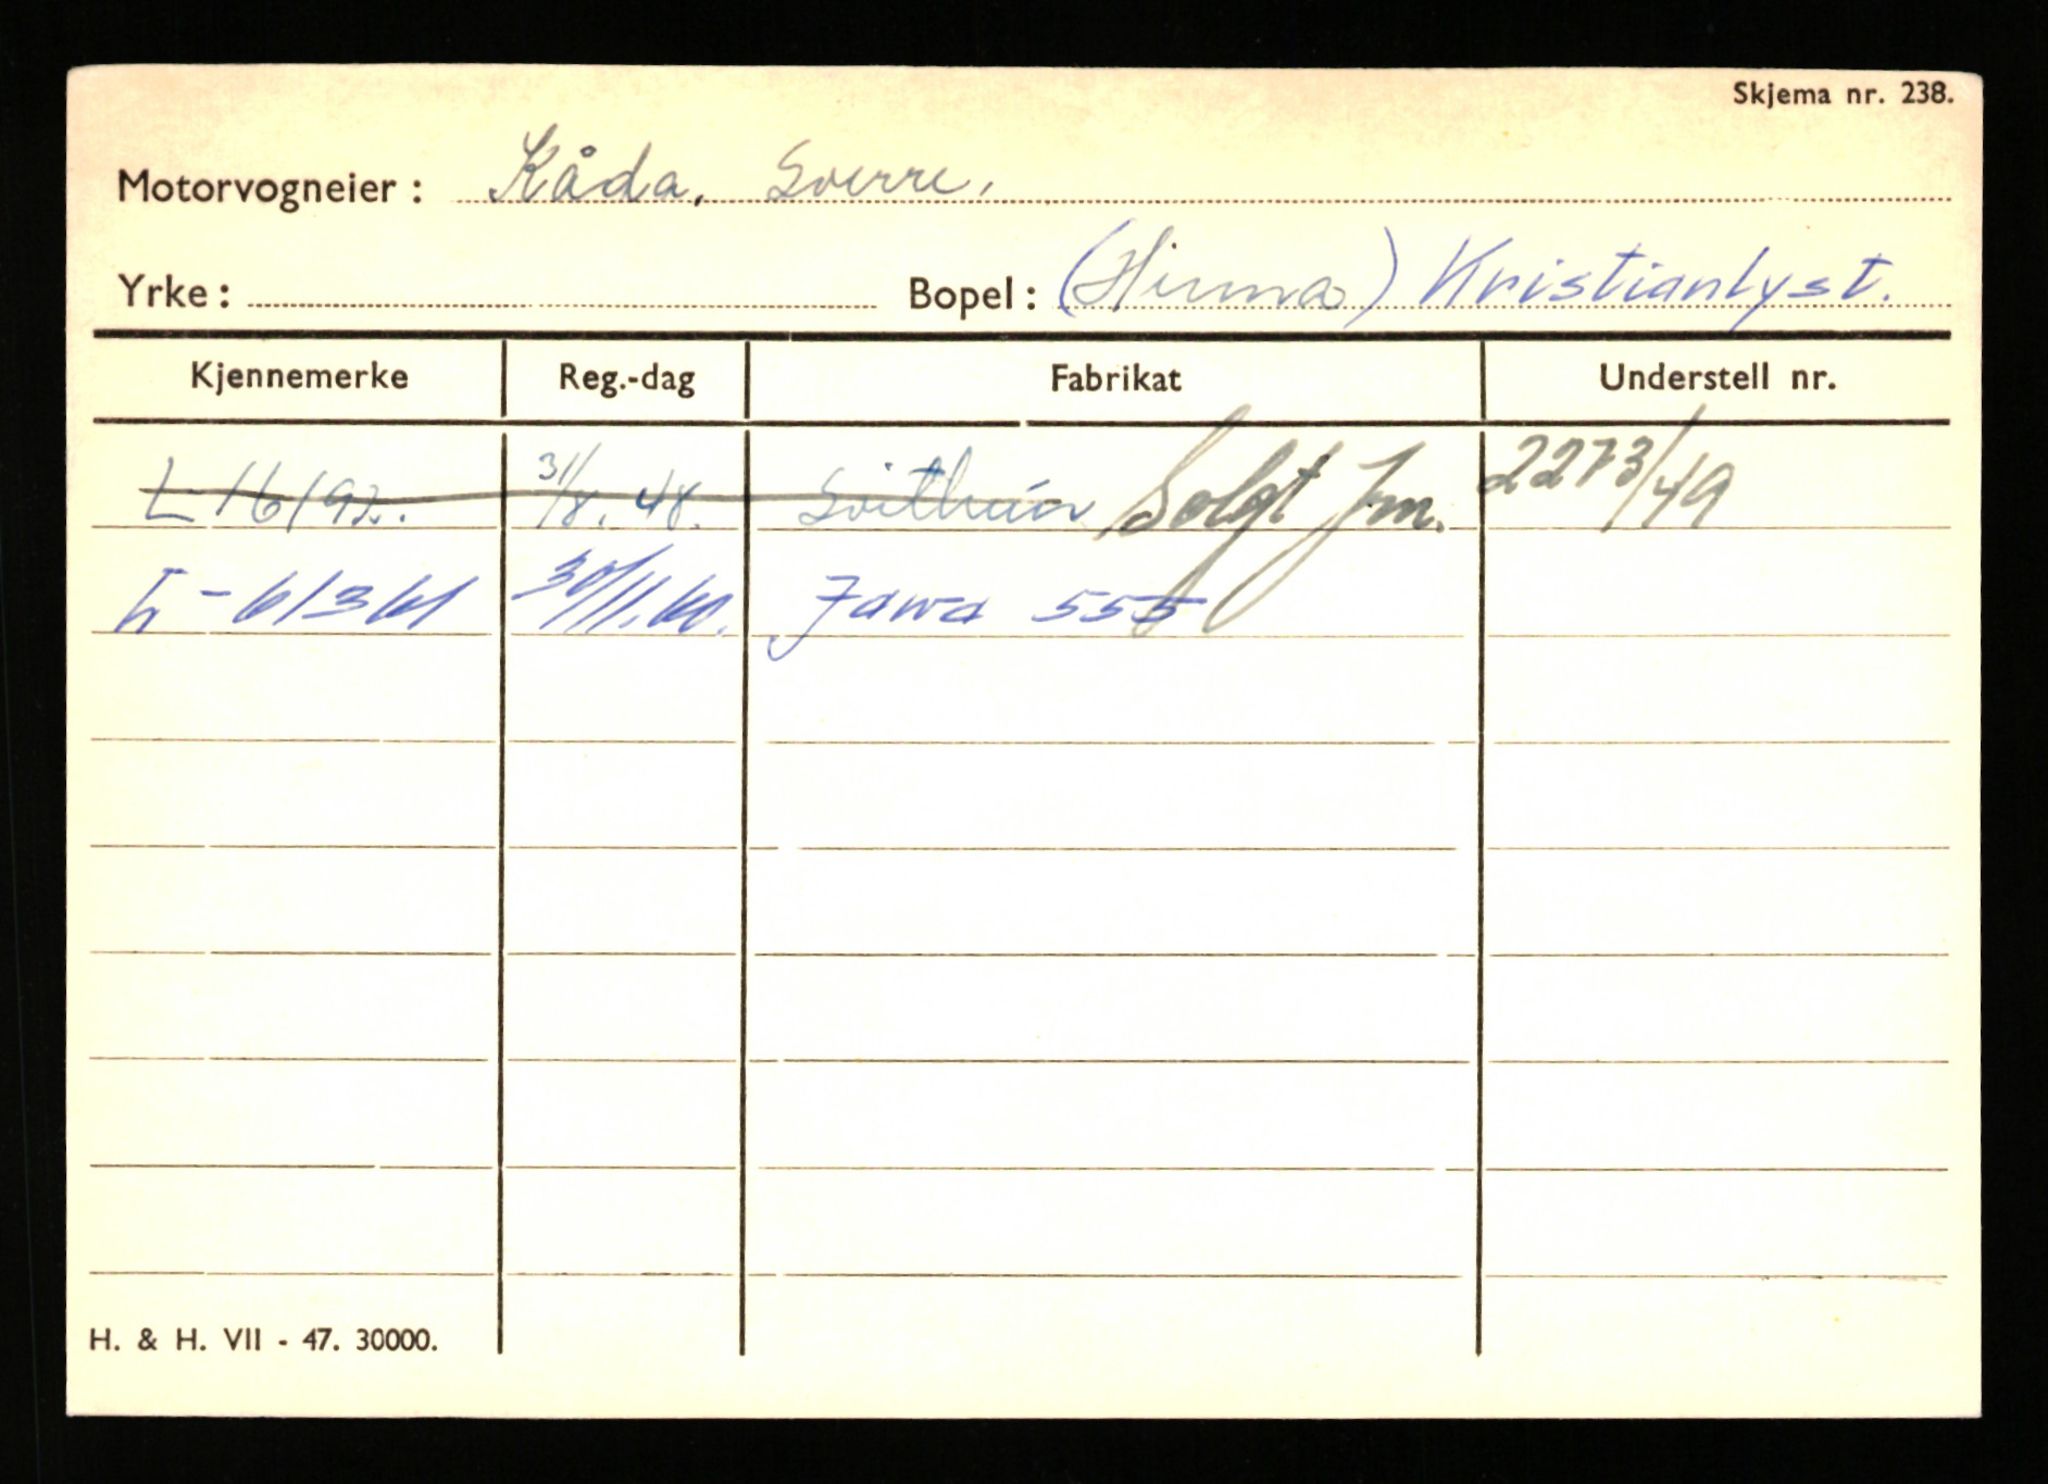 Skjema nr. 238.
Motorvogneier: Kåda, Sverre.
Yrke: Bopel: (Hinna) Kristianlyst.
Kjennemerke Reg.-dag Fabrikat Understell nr.
L-16192. 31/8. 48. Svithun Solgt Jm. 2273/49
L-61361 30/11.60. Jawa 555
H. & H. VII - 47. 30000.